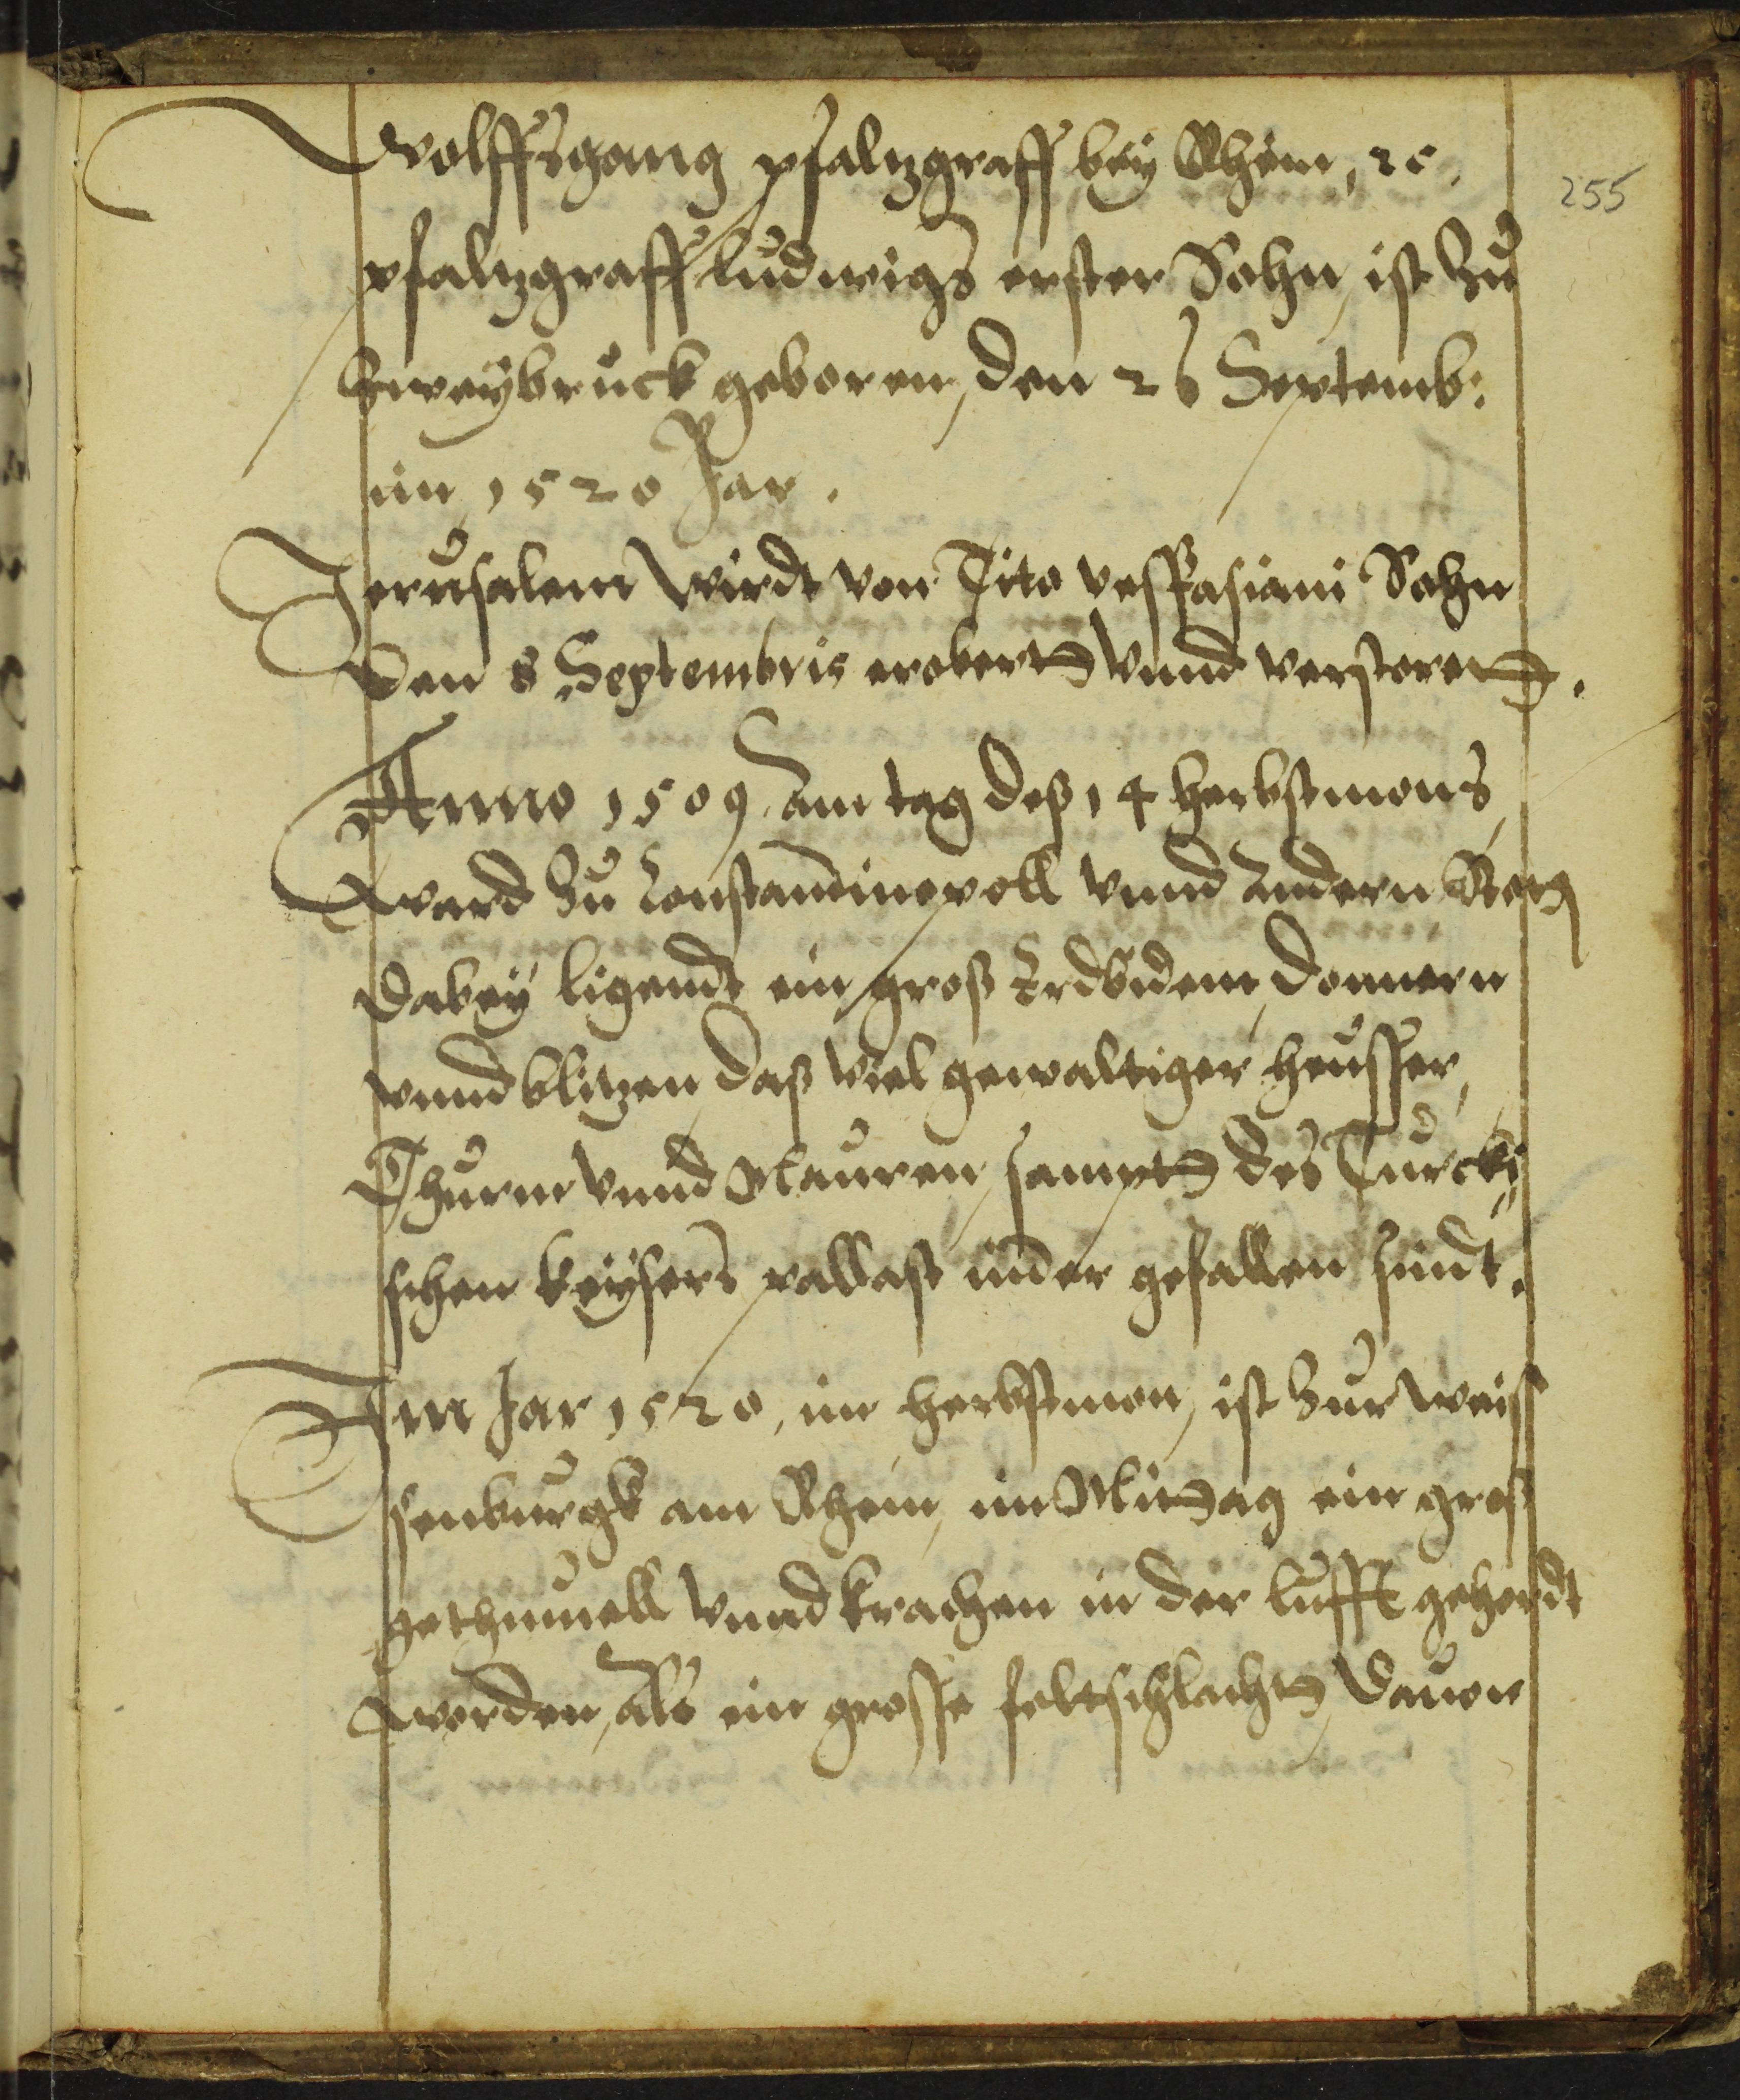 Wolffsgang pfaltzgraff bey Rhein, ꝛc.
255
pfaltzgraff Ludwigs erster Sohn, ist Zu
Zweybruck geboren, den 26 Septemb:
im 1520 Jar.
Jerusalem Wirdt von Tito vespasiani Sohn
den 8 Septembris erobertt Vnnd verstorett.
Anno 1509. am tag deß 14 herbstmons,
ward Zu Constantinopoll vnnd andern
dabey ligendt ein groß Erdbidem, donnern
vnnd blitzen, daß Viel gewaltiger heusser,
Thurm Vnnd Mauren, sampt des Turcki„
schen keysers pallast nider gefallen sindt.
Im Jar 1520, im herbstmon, ist Zur Weis
senburgk am Rhein, im Mittag ein groß
gethummell Vnnd krachen in der lufft gehordt
worden, als ein grosse feltschlacht, dauon